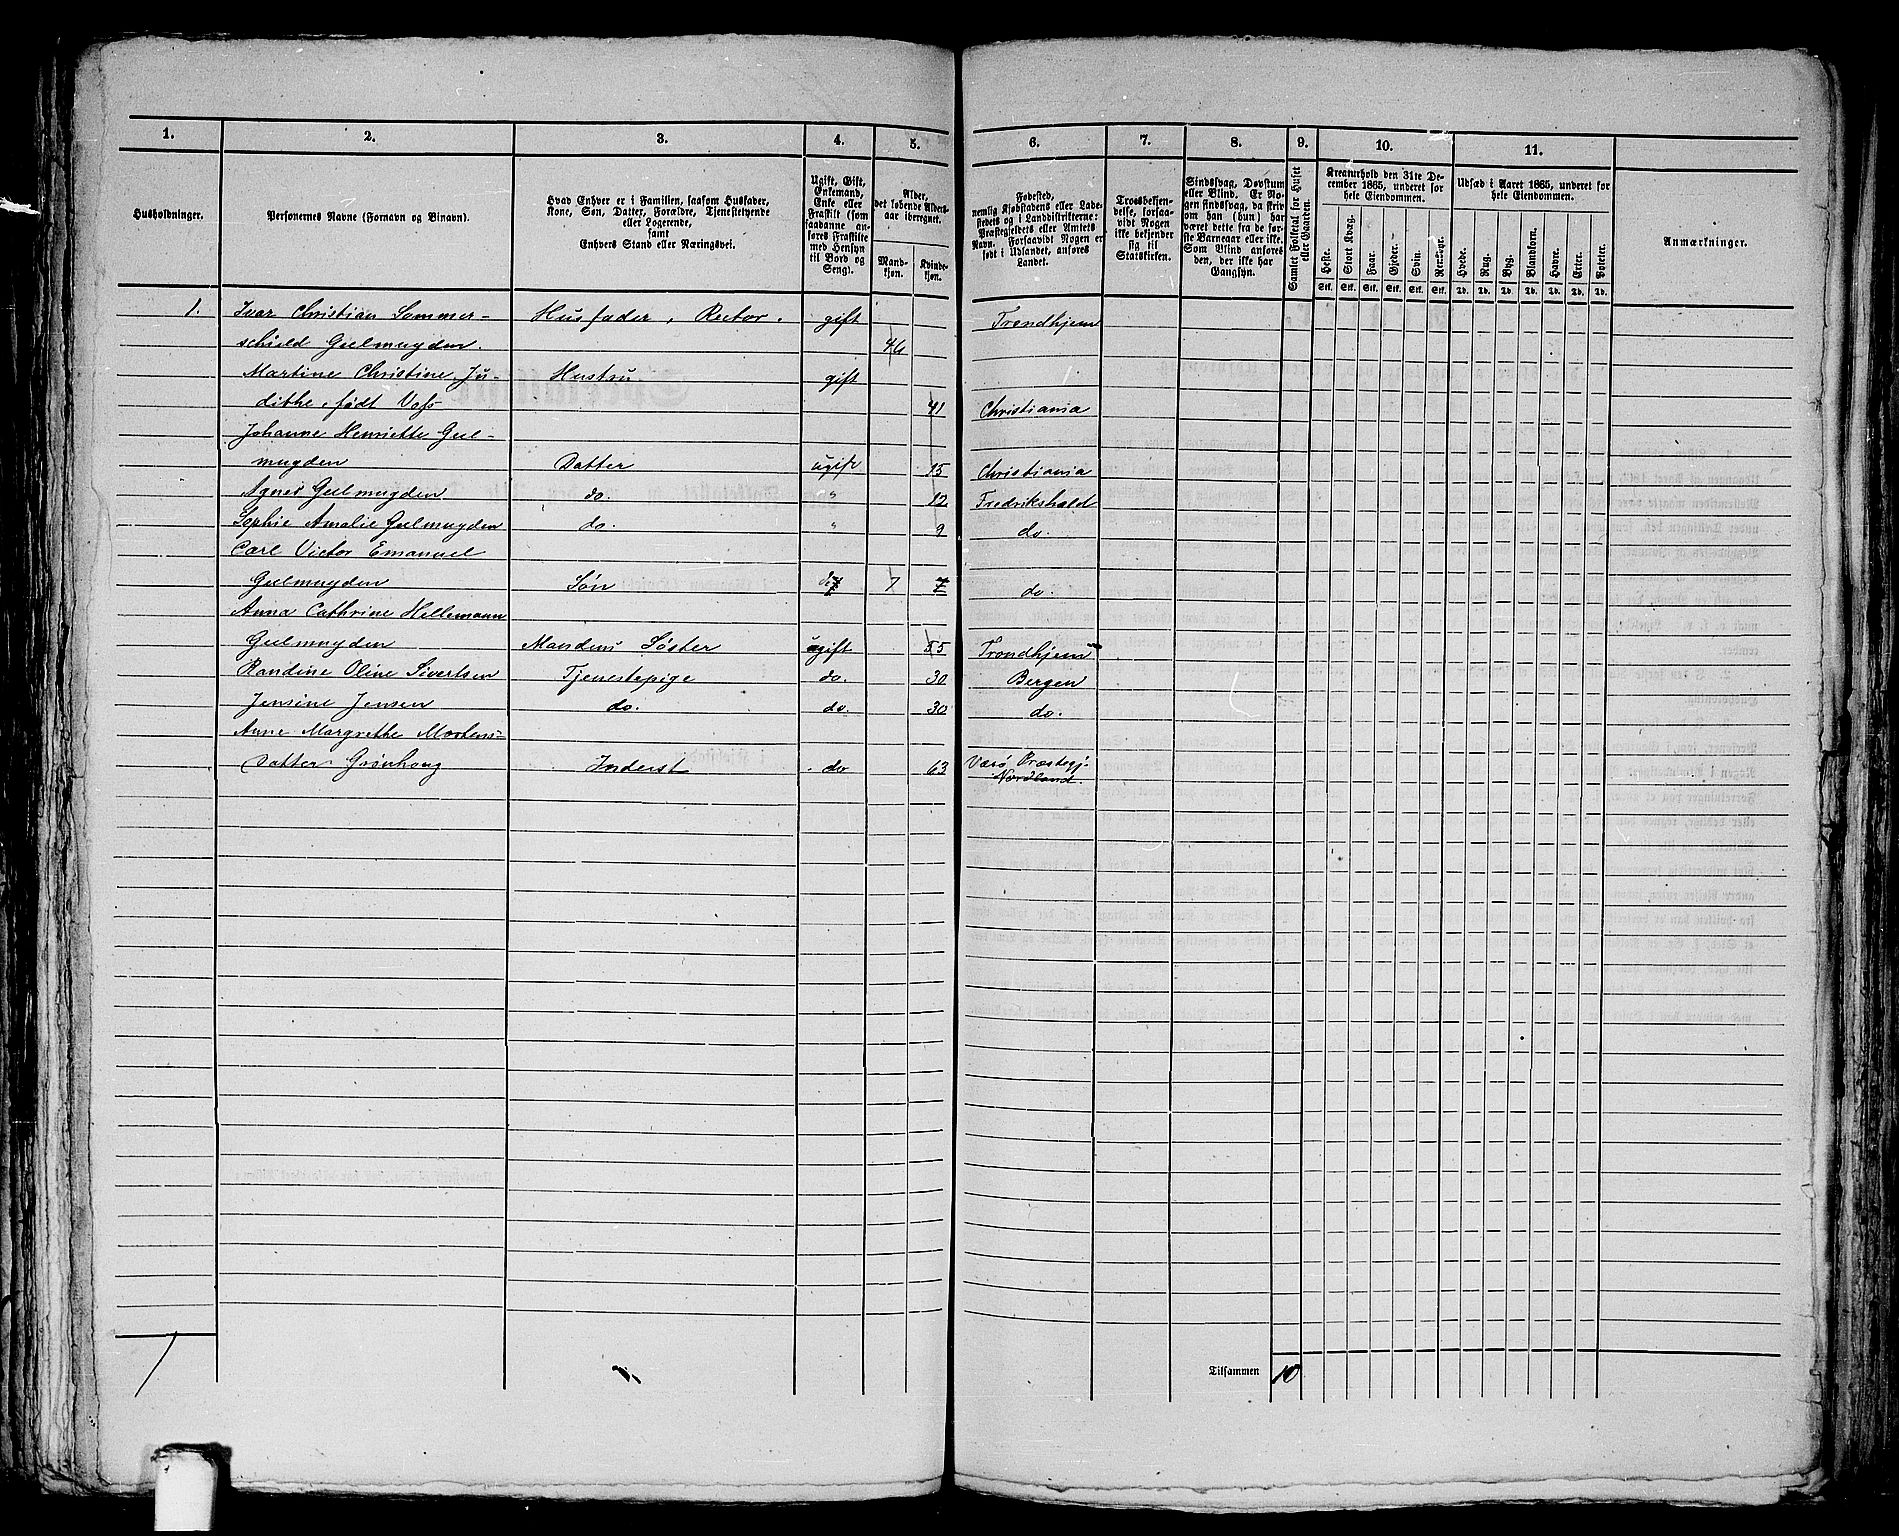 1. 2. 3. 4. 5. 6. 7. 8. 9. 10. 11.
Husholdninger.
Personernes Navne (Fornavn og Binavn).
Hvad Enhver er i Familien, saasom Husfader,
Kone, Søn, Datter, Forældre, Tjenestetyende
eller Logerende,
samt
Enhvers Stand eller Næringsvei.
Ugift, Gift,
Enkemand,
Enke eller
Fraskilt (som
saadanne an-
føres Fraskilte
med Hensyn
til Bord og
Seng).
Alder,
det løbende Alders-
aar iberegnet.
Mand-
kjøn.
Kvinde-
kjøn.
Fødested,
nemlig Kjøbstadens eller Lade-
stedets og i Landdistrikterne:
Præstegjeldets eller Amtets
Navn. Forsaavidt Nogen er
født i Udlandet, anføres
Landet.
Troesbekjen-
delse, forsaa-
vidt Nogen
ikke bekjender
sig til
Statskirken.
Sindssvag, Døvstum
eller Blind. Er No-
gen sindssvag, da skriv
om han (hun) har
været dette fra de før-
ste Barneaar eller ikke.
Som Blind anføres
den, der ikke har
Gangsyn.
Samlet Folketal for Huset
eller Gaarden.
Kreaturhold den 31te De-
cember 1865, underet for
hele Eiendommen.
Heste. Stort Kvæg. Faar. Gjeder. Svin. Rensdyr.
Stk. Stk. Stk. Stk. Stk. Stk.
Udsæd i Aaret 1865, underet for
hele Eiendommen.
Hvede. Rug. Byg. Blandkorn. Havre. Erter. Poteter.
Td. Td. Td. Td. Td. Td. Td.
Anmærkninger.
1. Ivar Christian Sommer- Husfader, Rector. gift Trondhjem
schield Gulmyden. 46
Martine Christine Ju- Hustru gift
dithe, født Voss 41 Christiania
Johanne Henriette Gul-
myden Datter ugift 15 Christiania
Agnes Gulmyden do. " 12 Fredrikshald
Sophie Amalie Gulmyden do. " 9 do.
Carl Victor Emanuel
Gulmyden Søn do 7 7 do.
Anna Cathrine Hellemann
Gulmyden Mandens Søster ugift 55 Trondhjem
Randine Oline Sivertsen Tjenestepige do. 30 Bergen
Jensine Jensen do. do. 30 do.
Anne Margrethe Mortens-
Datter Grønhoug Inderst do 63 Værø Præstegj.
Nordland
1
Tilsammen 10